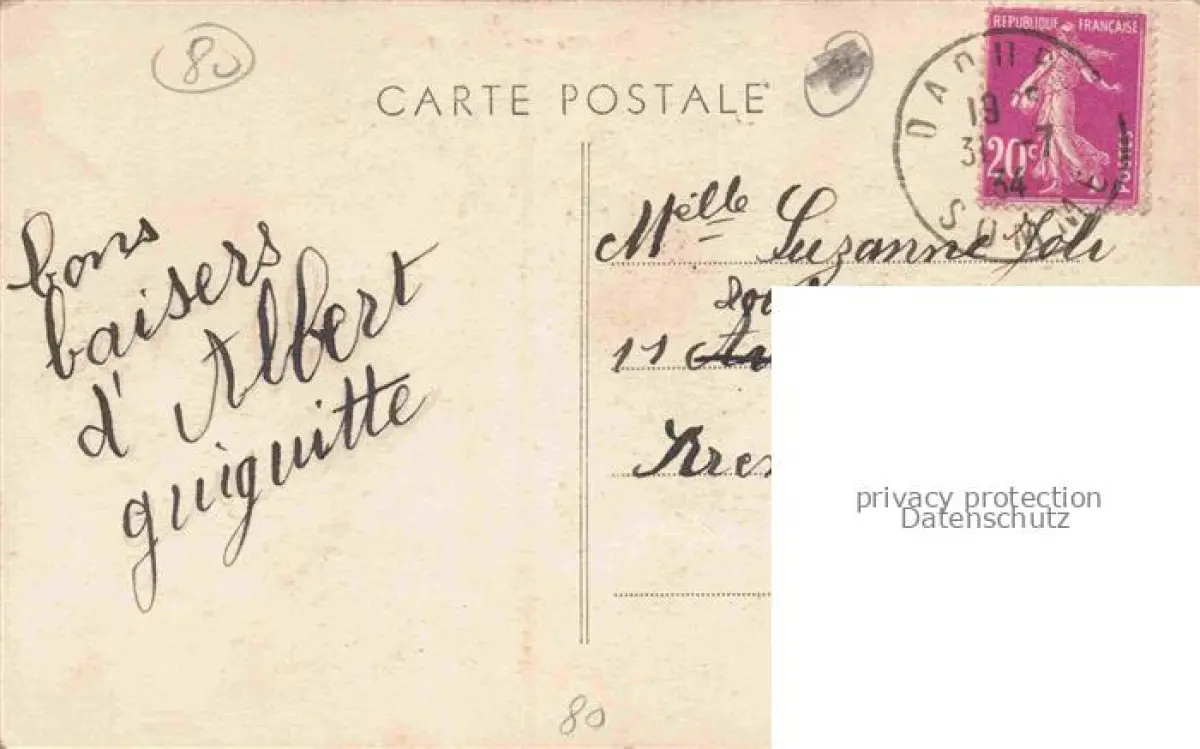 80
CARTE POSTALE
REPUBLIQUE FRANÇAISE
20c
POSTES
19
31 -7
34
SOMME
bons
baisers
d'Albert
guiguitte
Melle Suzanne Joli
11
privacy protection
Datenschutz
80